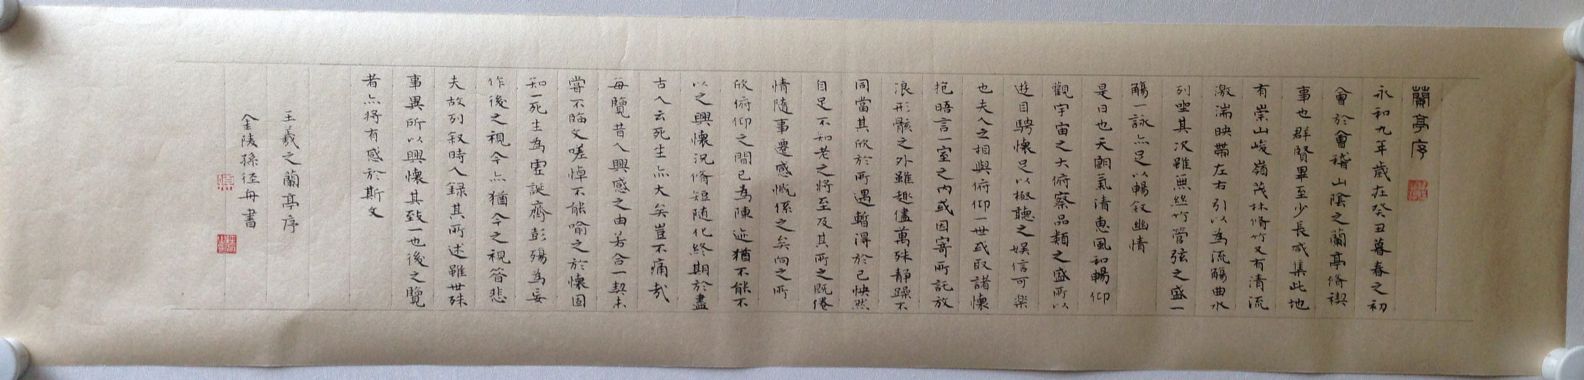 蘭亭序
永和九年歲在癸丑暮春之初
會於會稽山陰之蘭亭脩禊
事也群賢畢至少長咸集此地
有崇山峻嶺茂林脩竹又有清流
激湍映帶左右引以為流觴曲水
列坐其次雖無絲竹管弦之盛一
觴一詠亦足以暢叙幽情
是日也天朗氣清惠風和暢仰
觀宇宙之大俯察品類之盛所以
遊目騁懷足以極聽之娛信可樂
也夫人之相與俯仰一世或取諸懷
抱晤言一室之內或因寄所託放
浪形骸之外雖趣儘萬殊靜躁不
同當其欣於所遇暫得於己怏然
自足不知老之將至及其所之既倦
情隨事遷感慨係之矣向之所
欣俯仰之間已為陳迹猶不能不
以之興懷況脩短隨化終期於盡
古人云死生亦大矣豈不痛哉
每覽昔人興感之由若合一契未
嘗不臨文嗟悼不能喻之於懷固
知一死生為虛誕齊彭殤為妄
作後之視今亦猶今之視昔悲
夫故列叙時人錄其所述雖世殊
事異所以興懷其致一也後之覽
者亦將有感於斯文
王羲之蘭亭序
金陵孫徑舟書